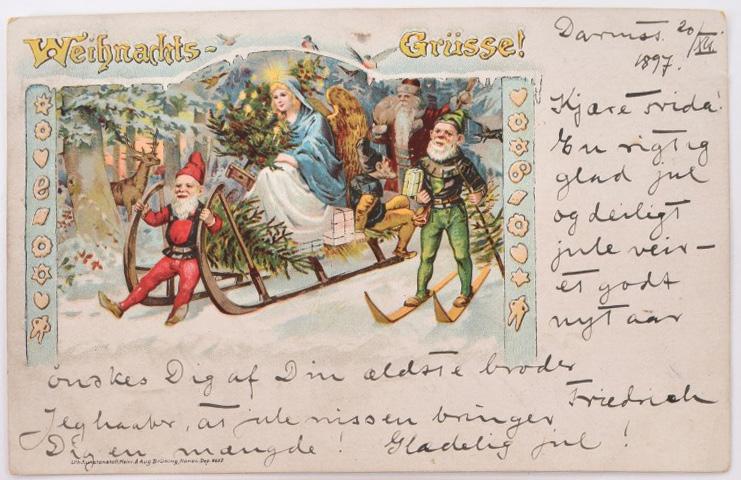 Weihnachts- Grüsse!
Darmst. 20/XII.
1897.
Kjære Frida!
En rigtig
glad jul
og deiligt
jule veir -
et godt
nyt aar
önskes Dig af Din ældste broder
Friedrich
Jeg haaber, at jule nissen bringer
Dig en mængde! Gladelig jul!
Lith. Kunstanstalt, Heinr. & Aug. Brüning, Hanau. Dep.